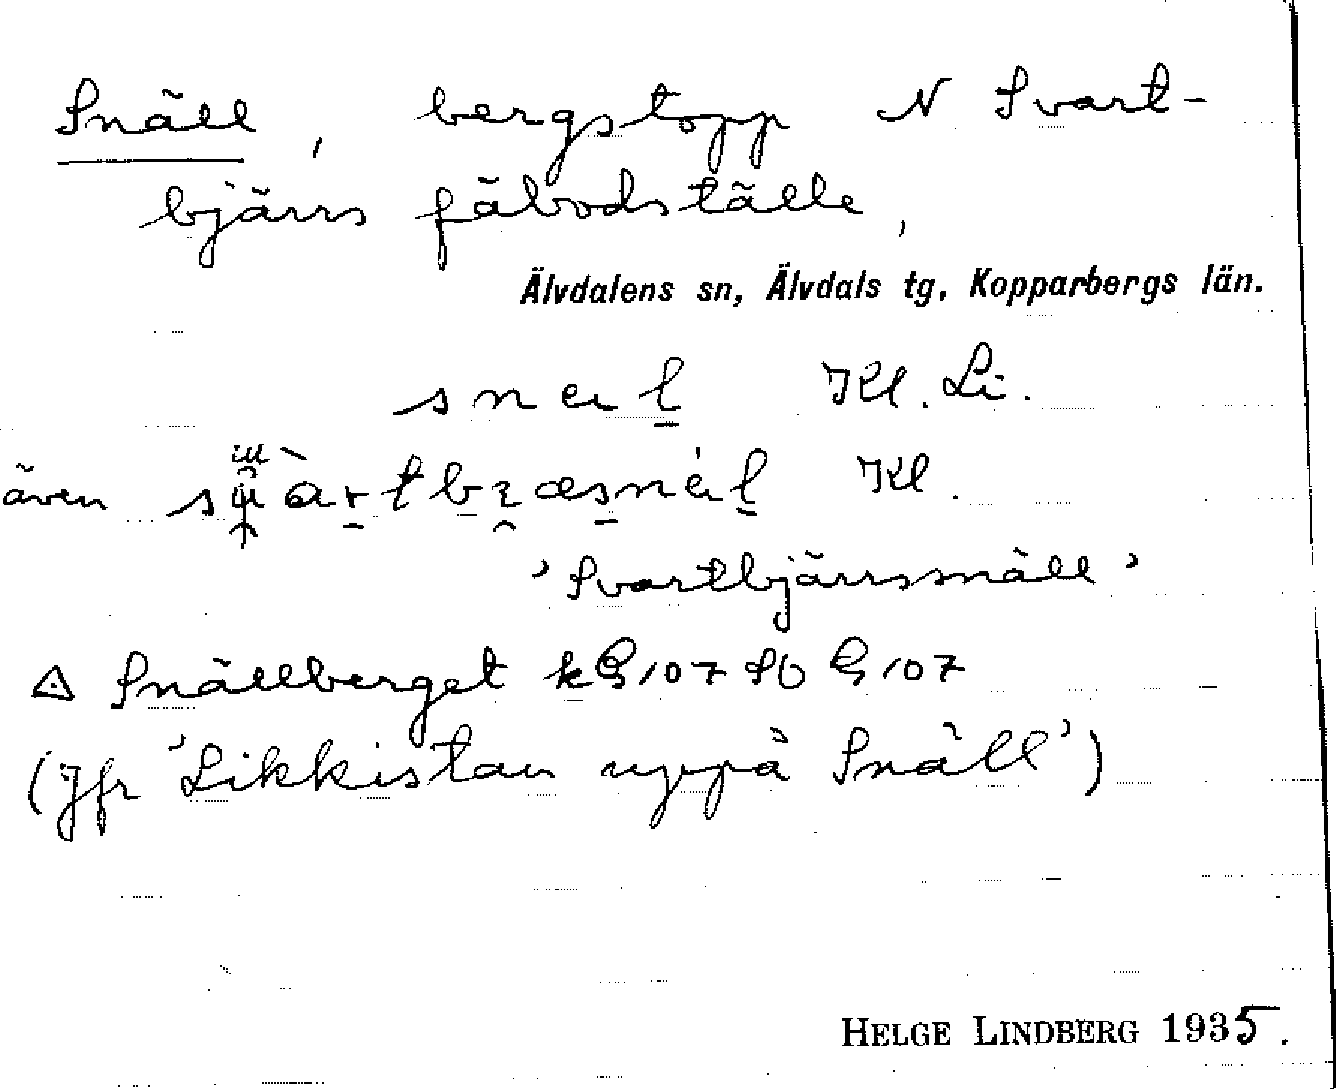 Snäll, bergstopp N Svart-
bjärrs fäbodställe,
Älvdalens sn, Älvdals tg, Kopparbergs län.
Kl. Li.
även Kl.
'Svartbjärrsnäll'
△ Snällberget
(Jfr 'Likkistan uppå Snäll')
HELGE LINDBERG 1935.